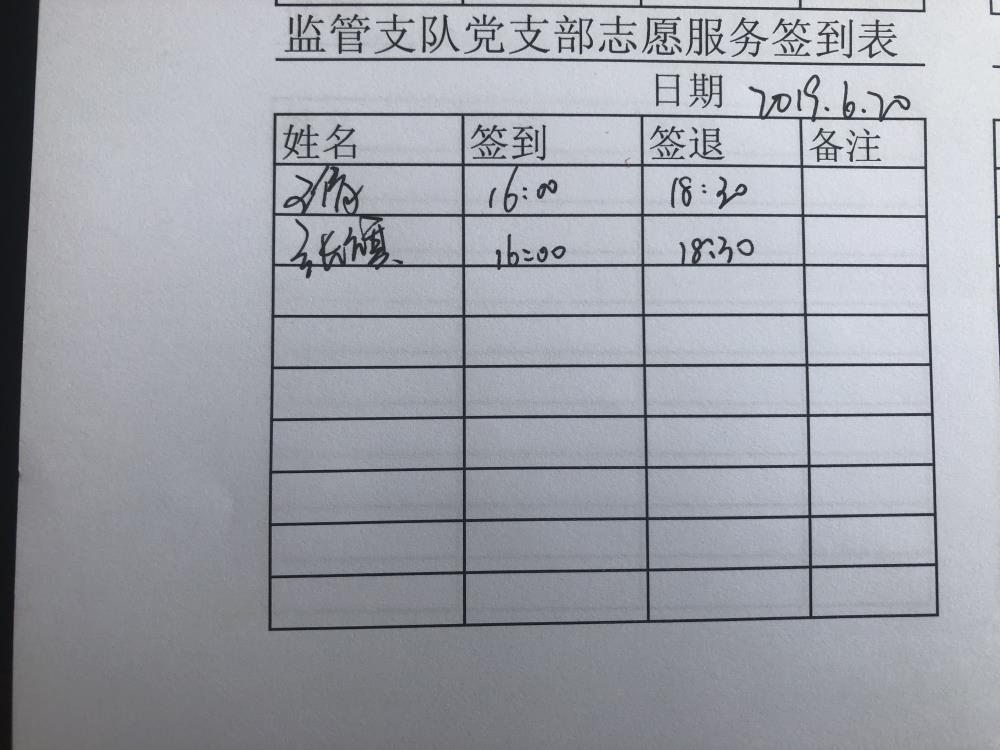 监管支队党支部志愿服务签到表
日期 2019.6.20
姓名 签到 签退 备注
16:00 18:30
16:00 18:30